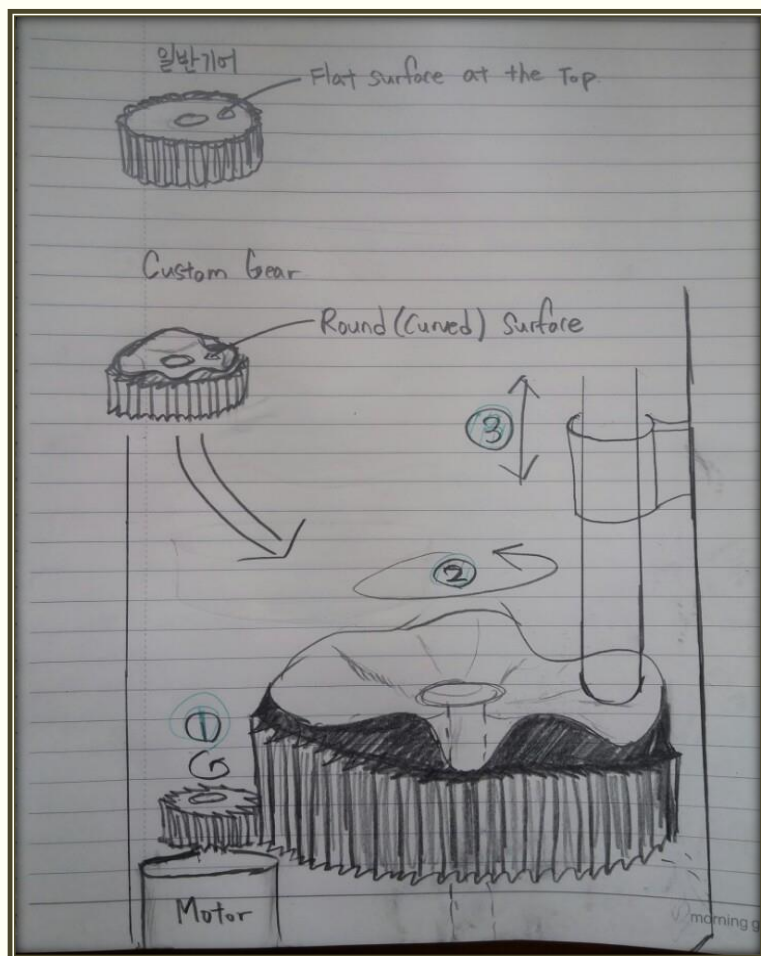 일반기어
Flat surface at the Top.
Custom Gear
Round (Curved) Surface
③
②
①
Motor
morning g